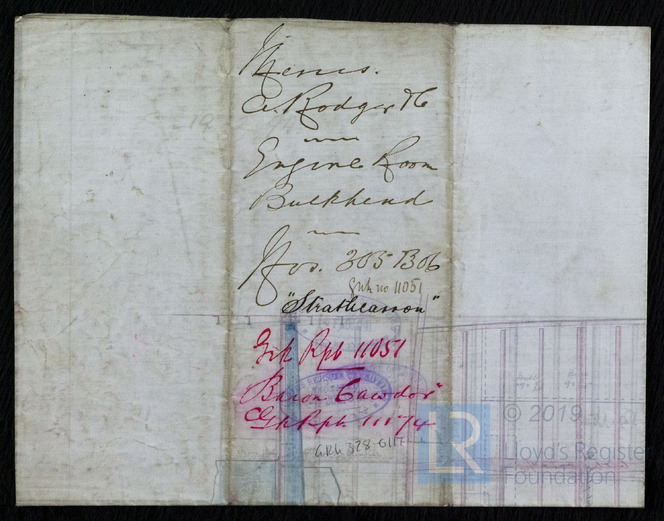 Messrs.
A. Rodger & Co
Engine Room
Bulkhead
Nos. 305 & 306
Grk no 11051
"Strathearn"
Grk Rpt 11051
"Baron Cawdor"
Grk Rpt. 11174
GRK 328-0117
LR
© 2019
Lloyd's Register
Foundation